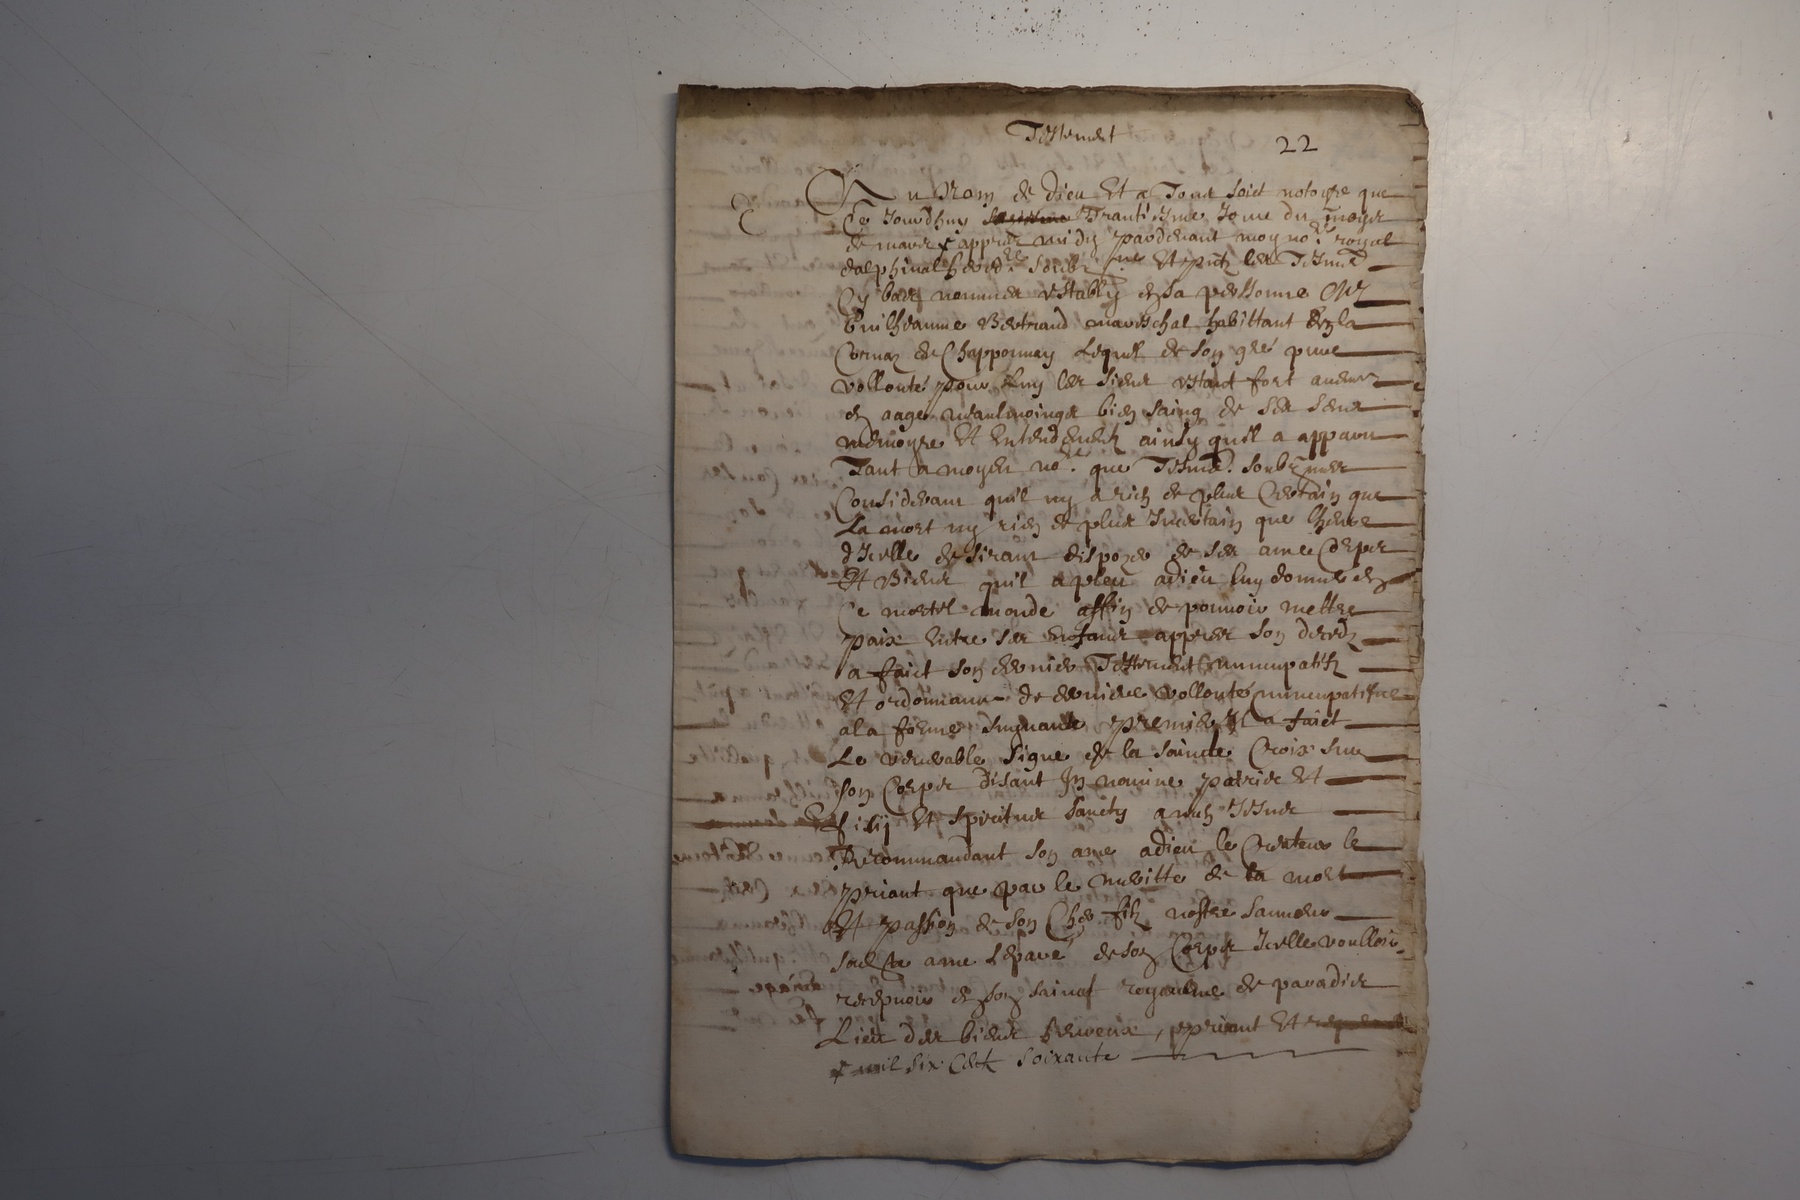 Testement
22
Au Nom de dieu Et a Tous soict notoyre que
Ce Jourdhuy Trantiesme Jour du moys
de mars appres midy pardevant moy no.re royal
dalphinal heredre soubz.ne Et pntz les Tesmz
Cy bas nommes estably en sa personne
Guilheaume Bertrand mareschal habittant en la
de Chapponnay Lequel de son gré pure
vollonté pour luy les siens estant fort antien
en aage neaulmoings bien saing de ses sens
memoyre Et Entendement ainsy quil a apparu
Tant a moyed no.re que Tesmz. soubznes
Considerant quil ny a rien de plus Certain que
La mort ny rien de plus Incertain que lheure
dIcelle desirant disposer de ses ame Corps
Et Biens quil a pleu a dieu luy donner en
Ce mortel monde affin de pouvoir mettre
paix Entre ses enfans appres son deces
a faict son dernier Testement nuncupatif
Et ordonnance de derniere vollonté nuncupatifve
a la forme suyvante premier Il a faict
Le venerable signe de la saincte Croix sur
son Corps disant In nomine patris Et
filij Et spiritus sancty amen Jesus
Recommandant son ame a dieu le Createur le
priant que par le meritte de la mort
Et passion de son Cher filz nostre sauveur
sad.te ame separé de son Corps Icelle voulloir
recepvoir en son sainct royaulme de paradis
Lieu des biens heureux, priant Et
mil six Cent soixante